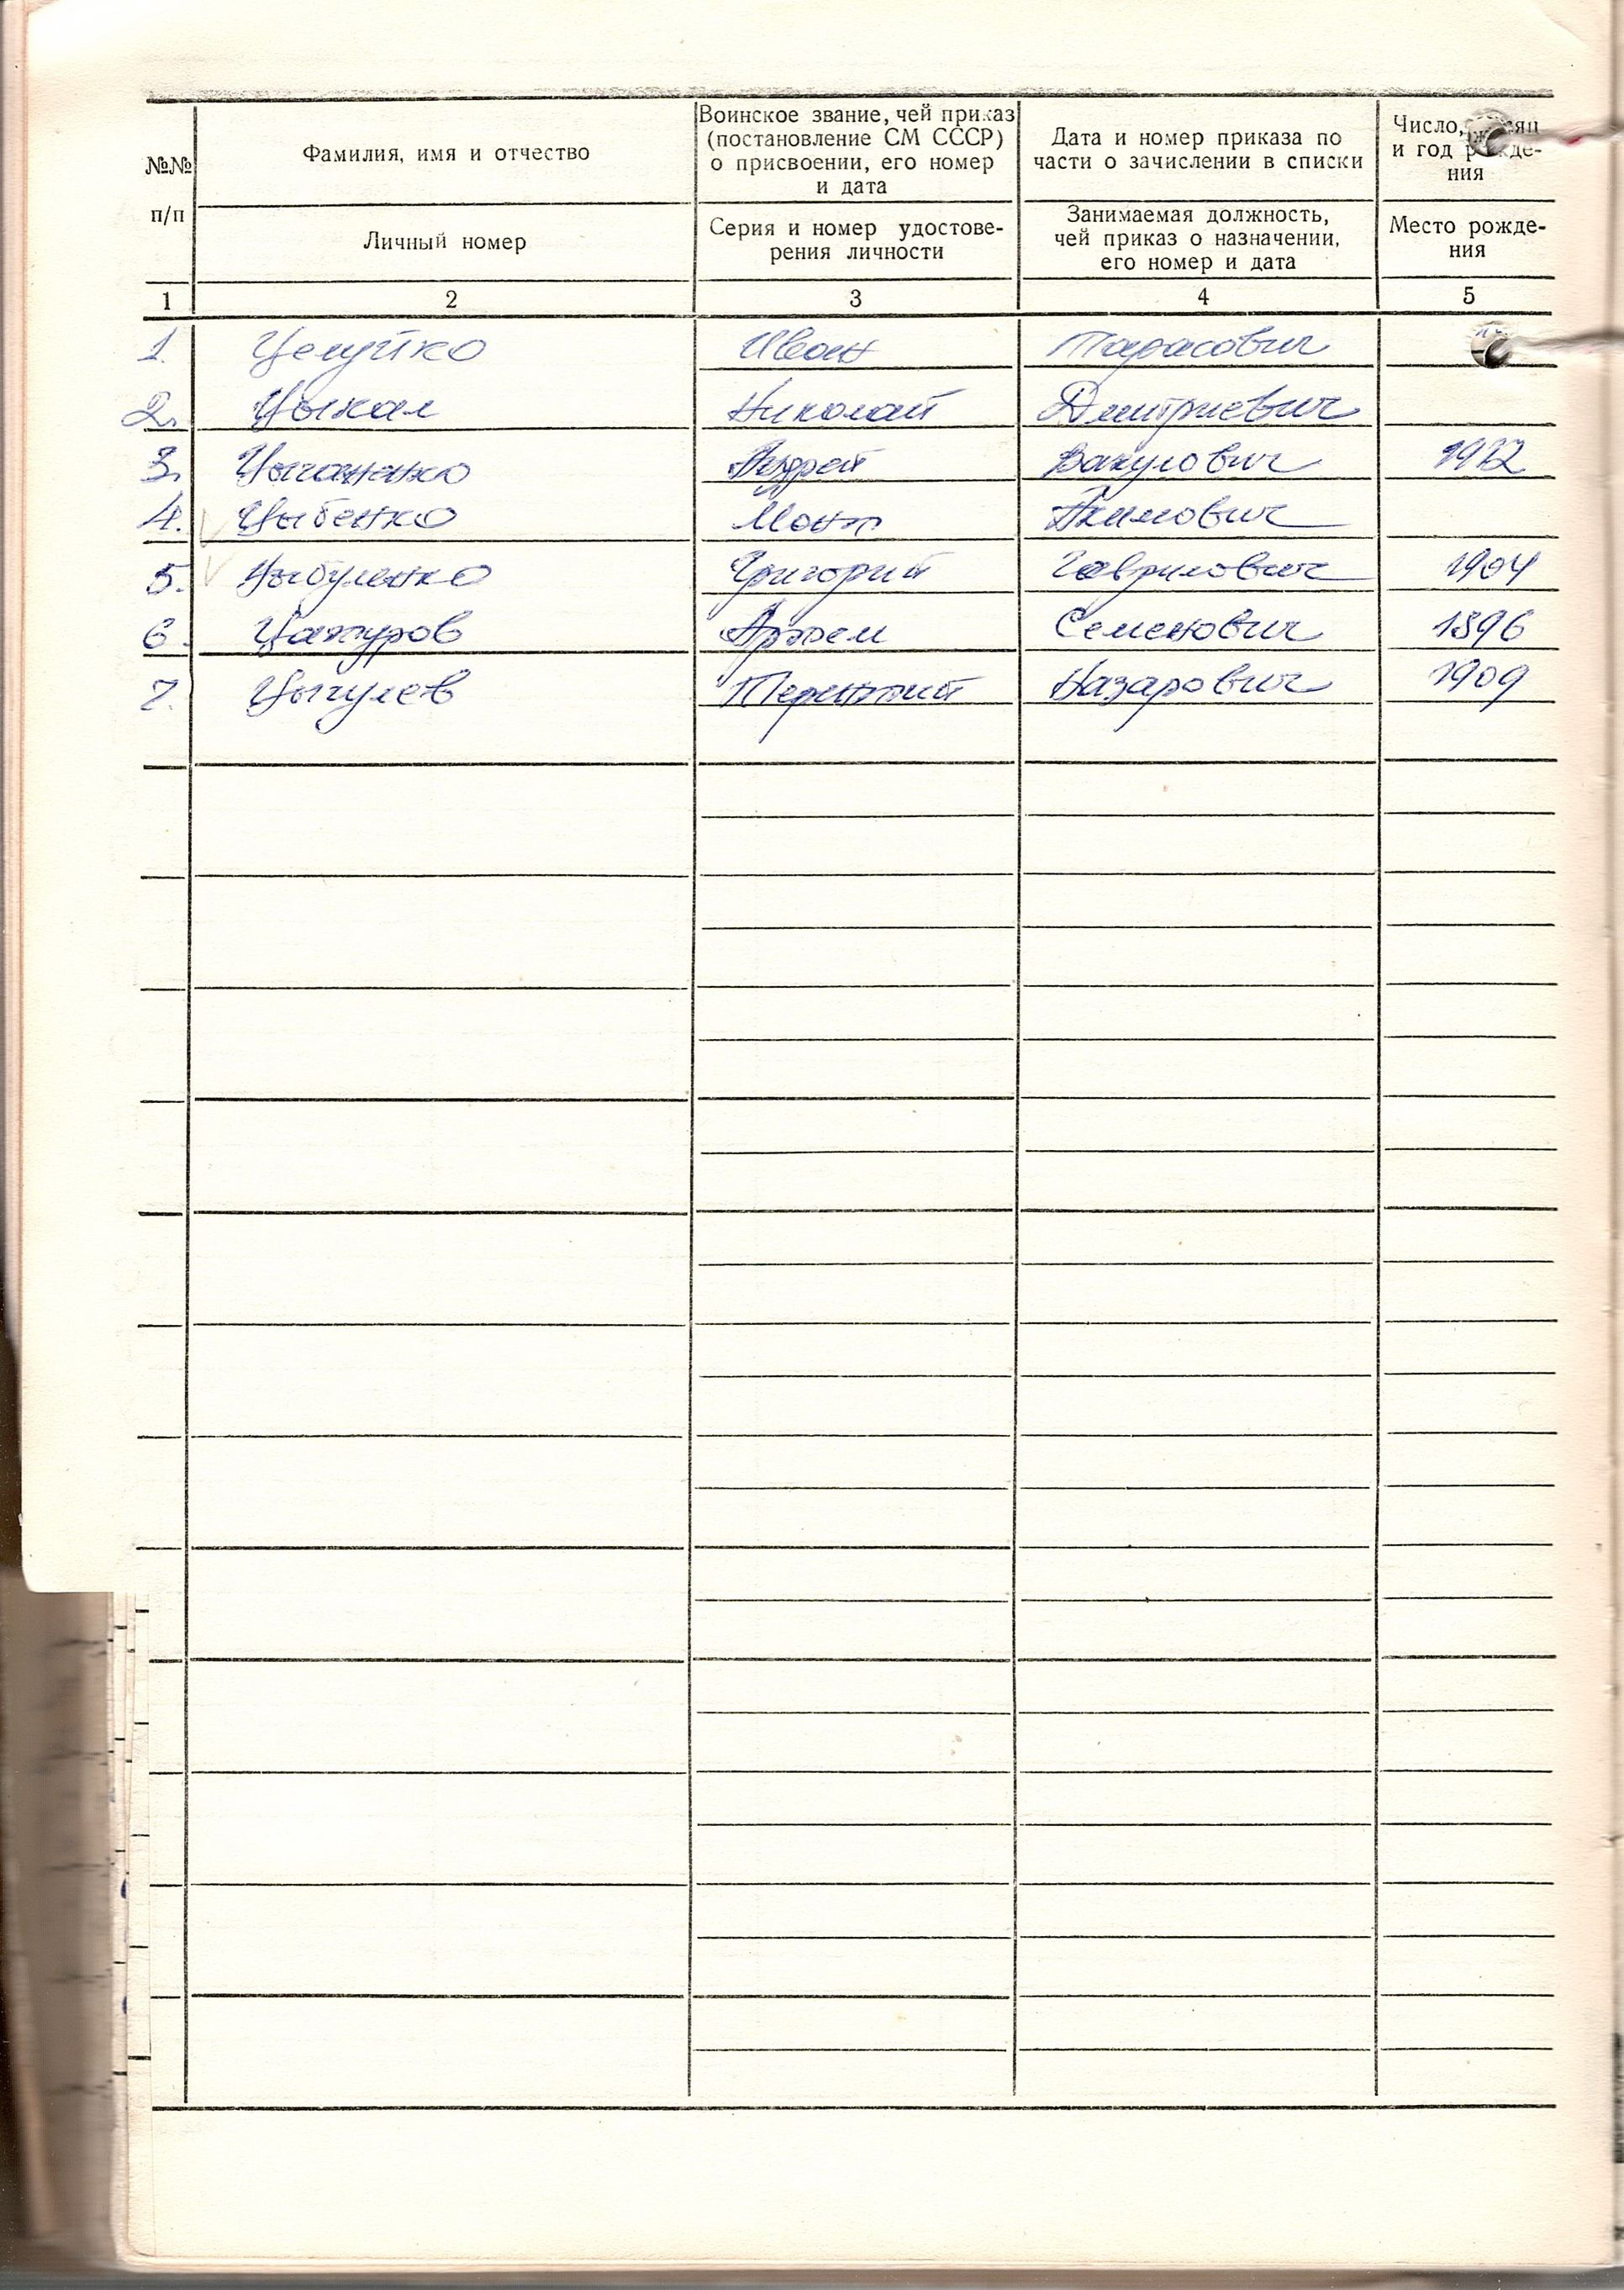 №№ п/п
Фамилия, имя и отчество
Личный номер
Воинское звание, чей приказ
(постановление СМ СССР)
о присвоении, его номер
и дата
Серия и номер удостове-
рения личности
Дата и номер приказа по
части о зачислении в списки
Занимаемая должность,
чей приказ о назначении,
его номер и дата
Число,
и год
ния
Место рожде-
ния
1 2 3 4 5
1. Целуйко Иван Тарасович
2. Цыкал Николай Дмитриевич
3. Цыганенко Андрей Вакулович
4. Цыбенко Акимович
5. Цыбуленко Григорий Гаврилович 1904
6. Цатуров Артем Семенович 1896
7. Цыгулев Терентий Назарович 1909